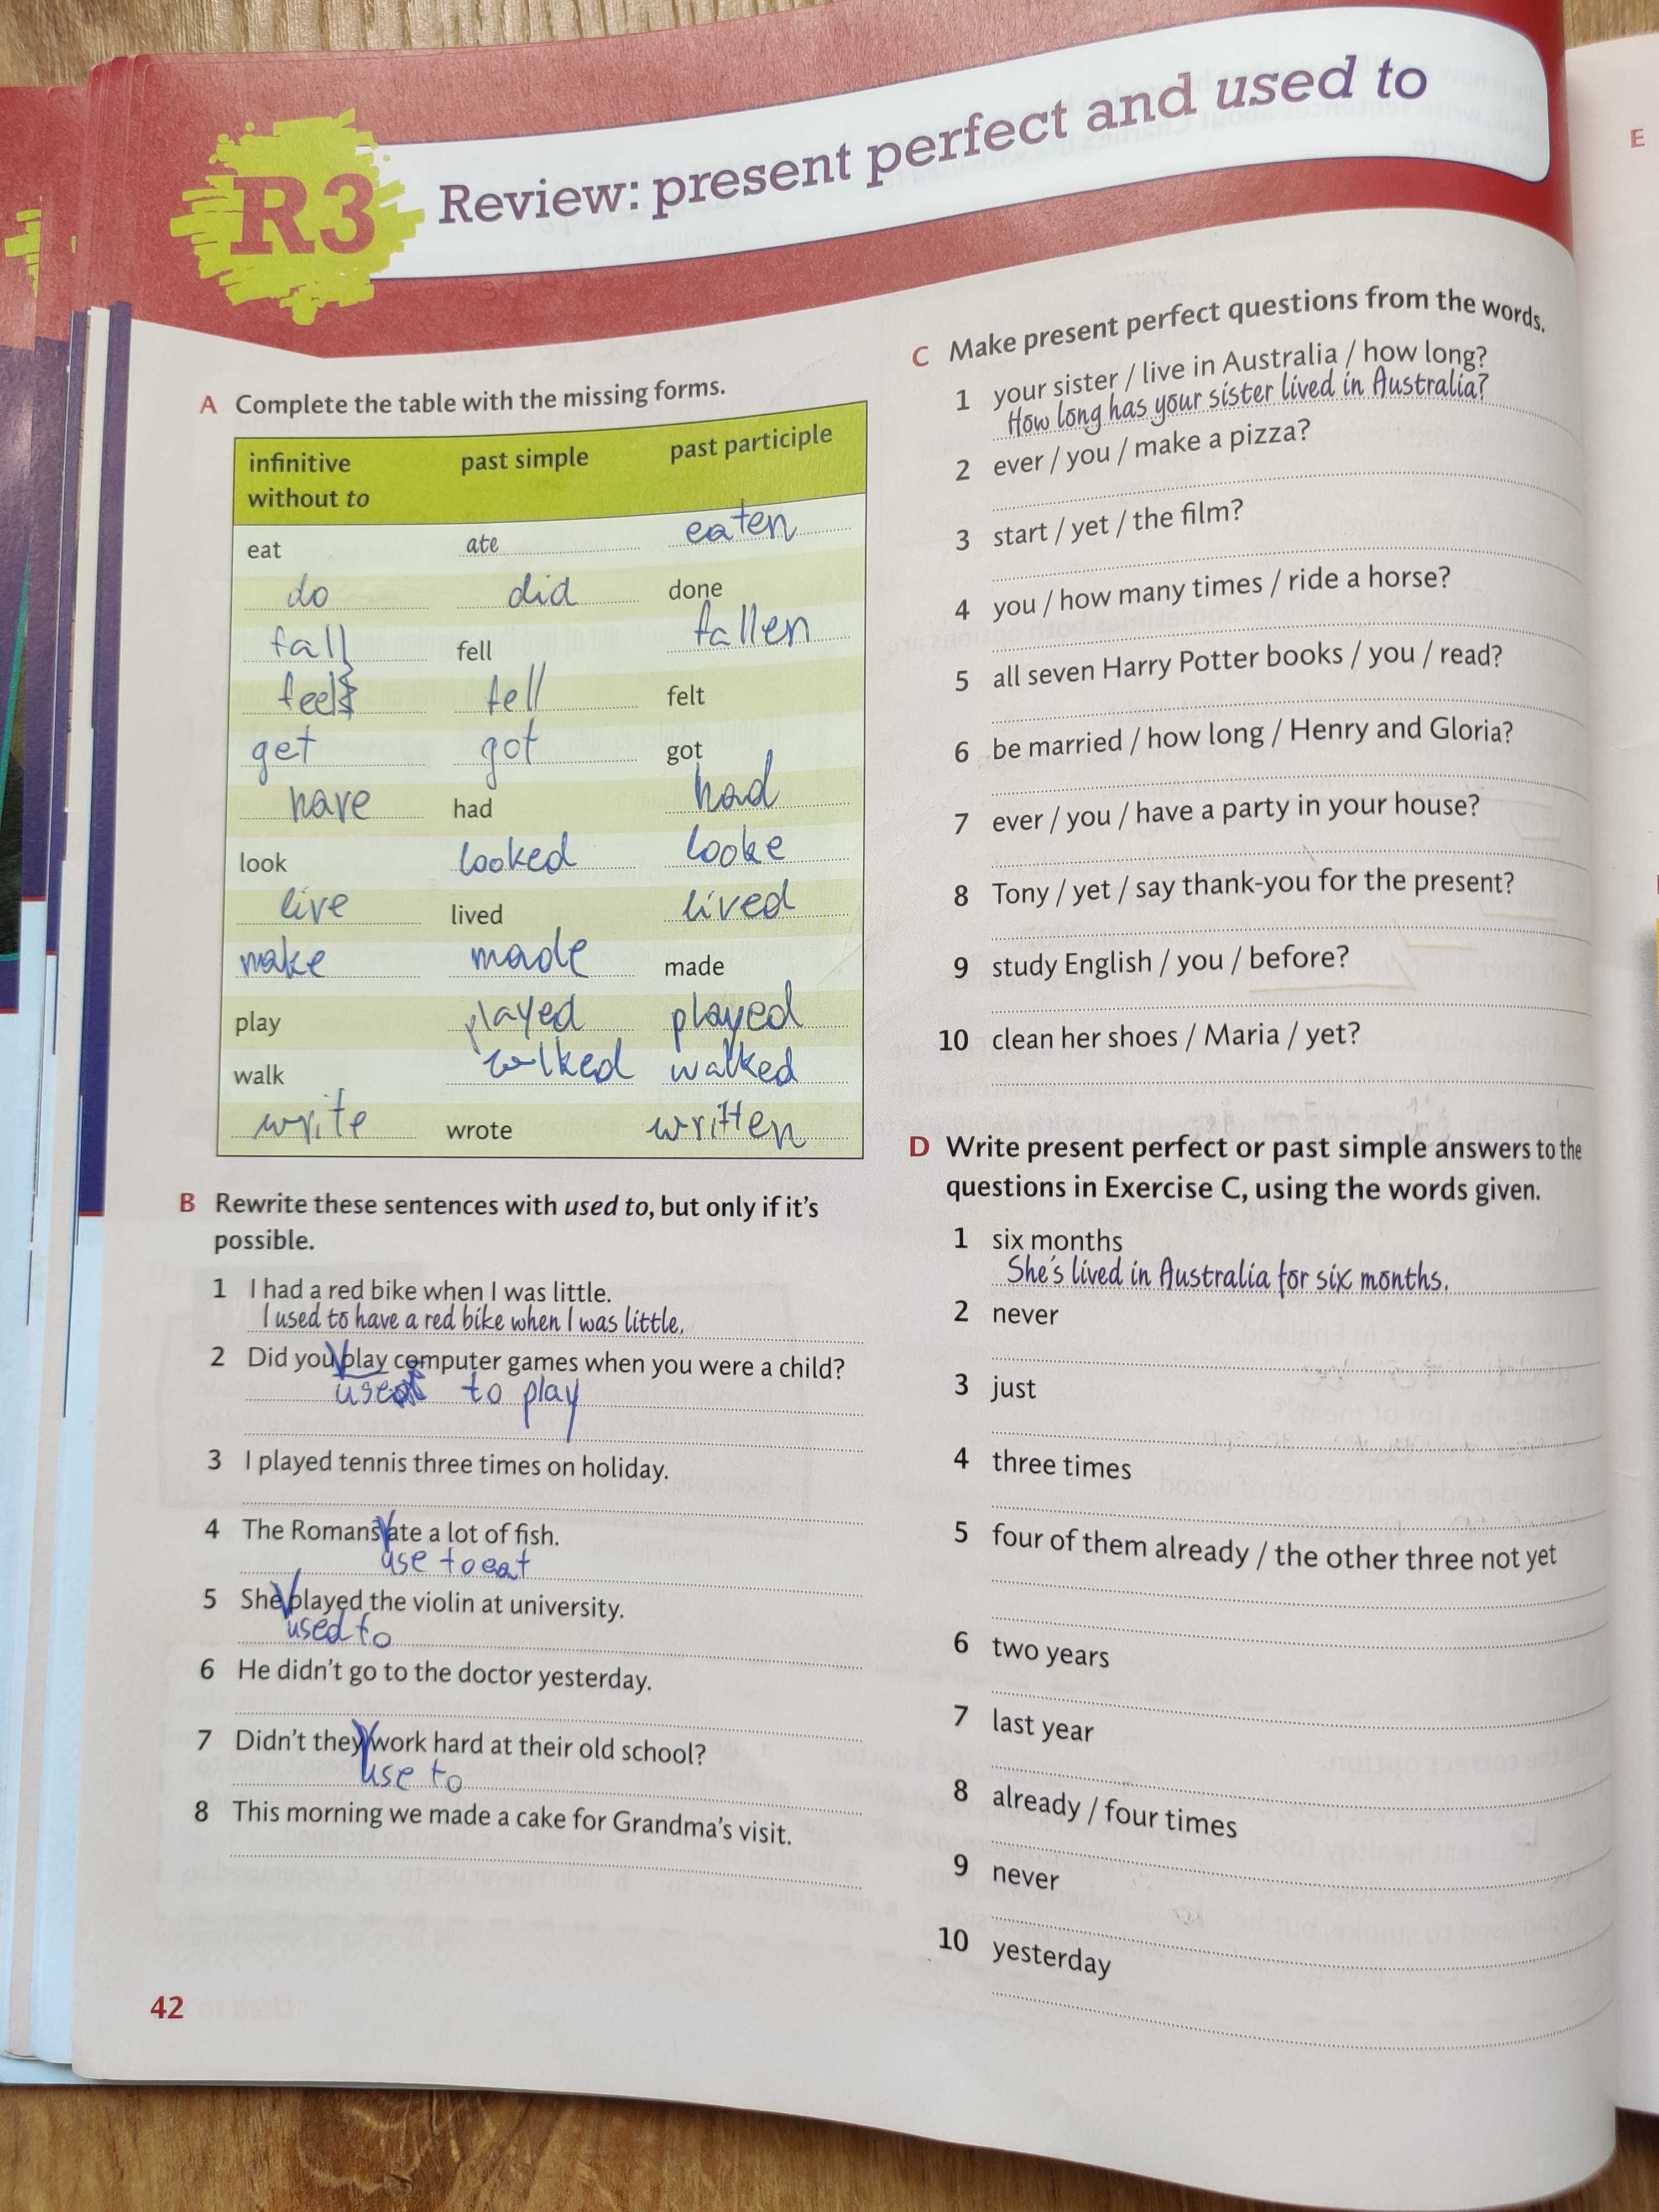 R3 Review: present perfect and used to
A Complete the table with the missing forms.
infinitive without to past simple past participle
eat ate eaten
do did done
fall fell fallen
feel fell felt
get got got
have had had
look looked looke
live lived lived
make made made
play played played
walk walked
write wrote written
B Rewrite these sentences with used to, but only if it's
possible.
1 I had a red bike when I was little.
I used to have a red bike when I was little.
2 Did you play computer games when you were a child?
use to play
3 I played tennis three times on holiday.
4 The Romans ate a lot of fish.
use to eat
5 She played the violin at university.
used to
6 He didn't go to the doctor yesterday.
7 Didn't they work hard at their old school?
use to
8 This morning we made a cake for Grandma's visit.
42
C Make present perfect questions from the words.
1 your sister / live in Australia / how long?
How long has your sister lived in Australia?
2 ever / you / make a pizza?
3 start / yet / the film?
4 you / how many times / ride a horse?
5 all seven Harry Potter books / you / read?
6 be married / how long / Henry and Gloria?
7 ever / you / have a party in your house?
8 Tony / yet / say thank-you for the present?
9 study English / you / before?
10 clean her shoes / Maria / yet?
D Write present perfect or past simple answers to the
questions in Exercise C, using the words given.
1 six months
She's lived in Australia for six months.
2 never
3 just
4 three times
5 four of them already / the other three not yet
6 two years
7 last year
8 already / four times
9 never
10 yesterday
E